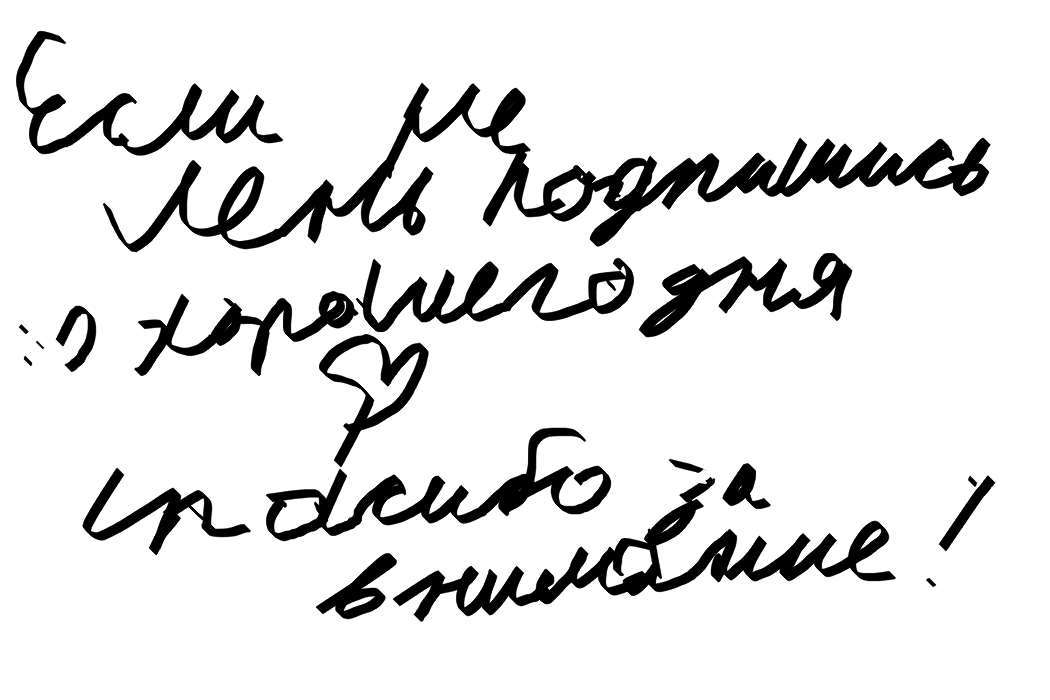 Если не
лень подпишись
:) хорошего дня
спасибо за
внимание!